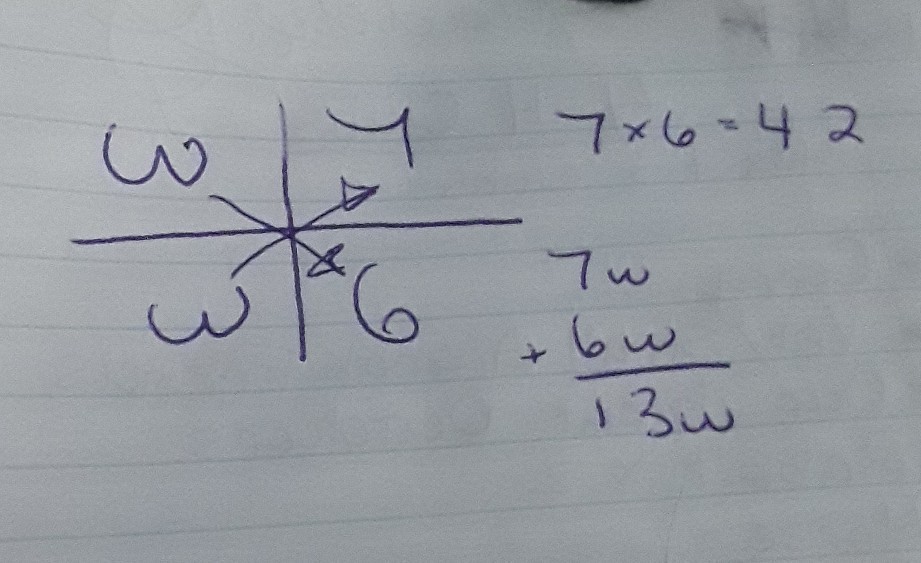 w 7 7×6=42
w 6
7w
+ 6w
13w